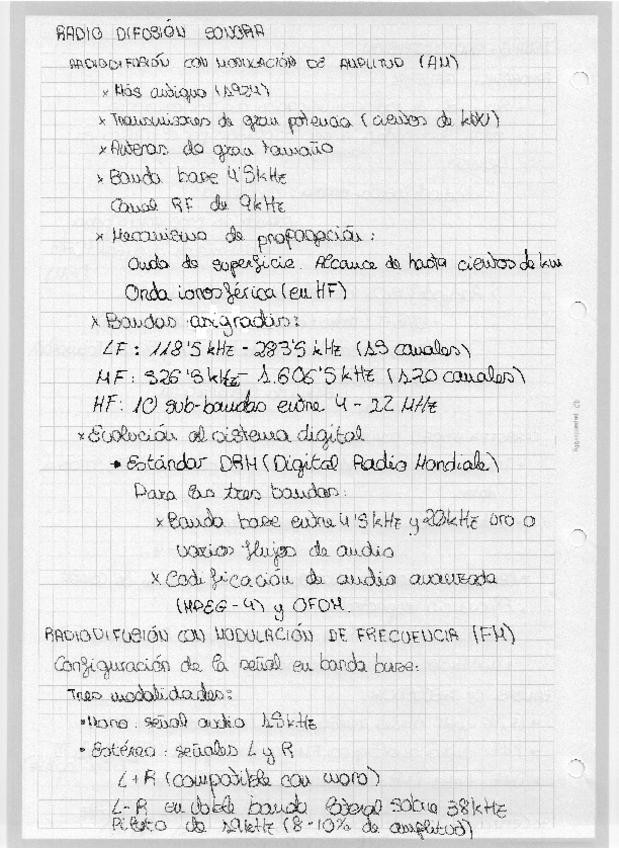 RADIO DIFUSIÓN SONORA
RADIODIFUSIÓN CON MODULACIÓN DE AMPLITUD (AM)
x Más antiguo (1924)
x Transmisores de gran potencia (cientos de kW)
x Antenas de gran tamaño
x Banda base 4'5kHz
Canal RF de 9kHz
x Mecanismo de propagación:
Onda de superficie. Alcance de hasta cientos de km
Onda ionosférica (en HF)
x Bandas asignadas:
LF: 148'5 kHz - 283'5 kHz (15 canales)
MF: 526'5 kHz - 1.606'5 kHz (120 canales)
HF: 10 sub-bandas entre 4 - 22 MHz
x Evolución al sistema digital
→ Estándar DRM (Digital Radio Mondiale)
Para las tres bandas:
x Banda base entre 4'5 kHz y 20kHz uno o
varios flujos de audio
x Codificación de audio avanzada
(MPEG-4) y OFDM.
RADIODIFUSIÓN CON MODULACIÓN DE FRECUENCIA (FM)
Configuración de la señal en banda base:
Tres modalidades:
• Mono: señal audio 15kHz
• Estéreo: señales L y R
L+R (compatible con mono)
L-R en doble banda lateral sobre 38kHz
Piloto de 19kHz (8-10% de amplitud)